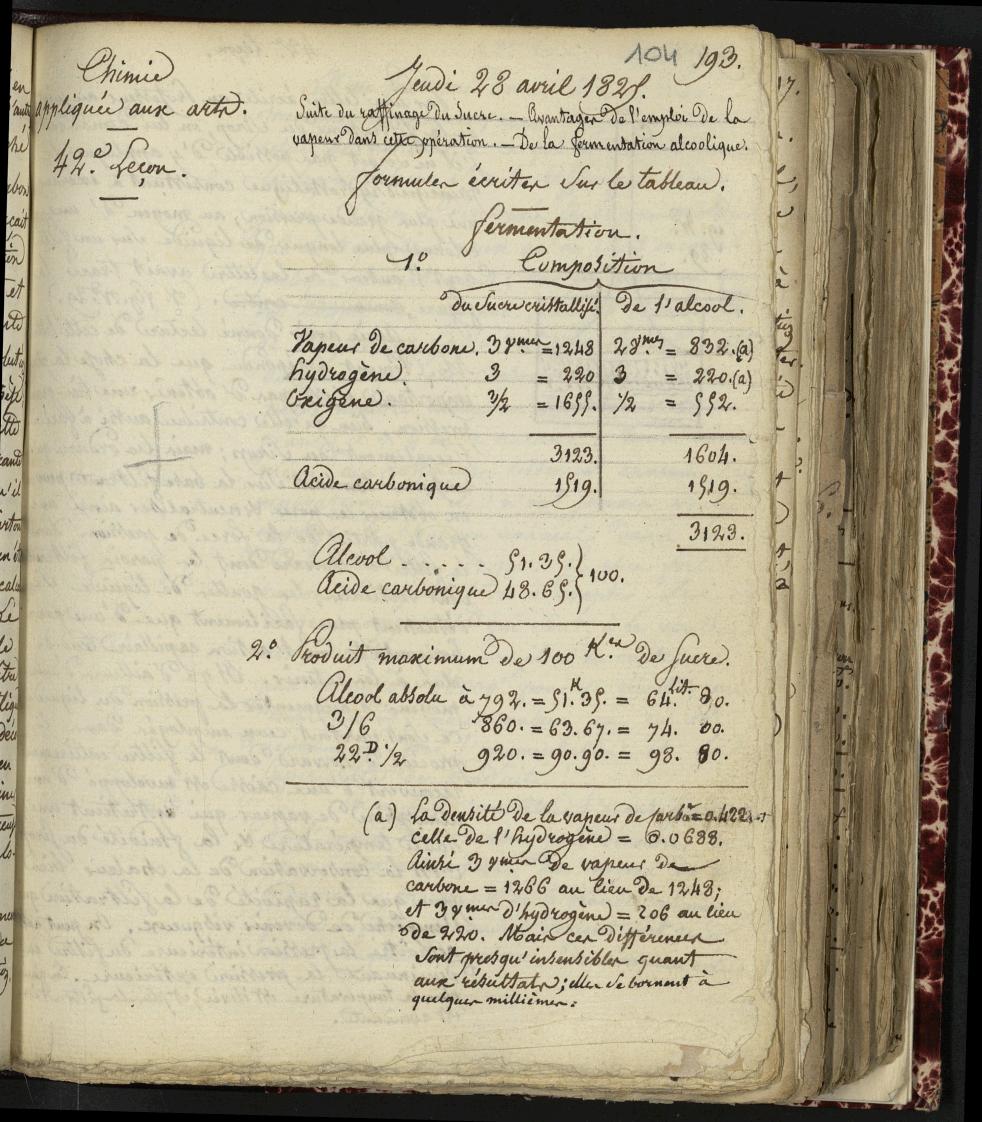 104 193.
Chimie
appliquée aux arts.
42.e Leçon.
Jeudi 28 avril 1825.
Suite du raffinage du Sucre. — Avantages de l'emploi de la
vapeur dans cette opération. — De la fermentation alcoolique.
formules écrites sur le tableau.
fermentation.
1.o Composition
du Sucre cristallisé. De l'alcool.
Vapeur de carbone. 3 vmes = 1248 2 vmes = 832.(a)
hydrogène. 3 = 220 3 = 220.(a)
Oxigène. 3/2 = 1655. 1/2 = 552.
3123. 1604.
Acide carbonique 1519. 1519.
3123.
Alcool . . . . . . 51.35. } 100.
Acide carbonique 48.65.
2.o Produit maximum de 100 K.es de Sucre.
Alcool absolu à 792. = 51.K 35. = 64.Lit. 80.
3/6 860. = 63.67. = 74. 00.
22.D 1/2 920. = 90.90. = 98. 80.
(a) la densité de la vapeur de carb.e = 0.422.
celle de l'hydrogène = 0.0688.
Ainsi 3 vmes de vapeur de
carbone = 1266 au lieu de 1248;
et 3 vmes d'hydrogène = 206 au lieu
de 220. Mais ces différences
sont presqu'insensibles quant
aux résultats; elles se bornent à
quelques millièmes.